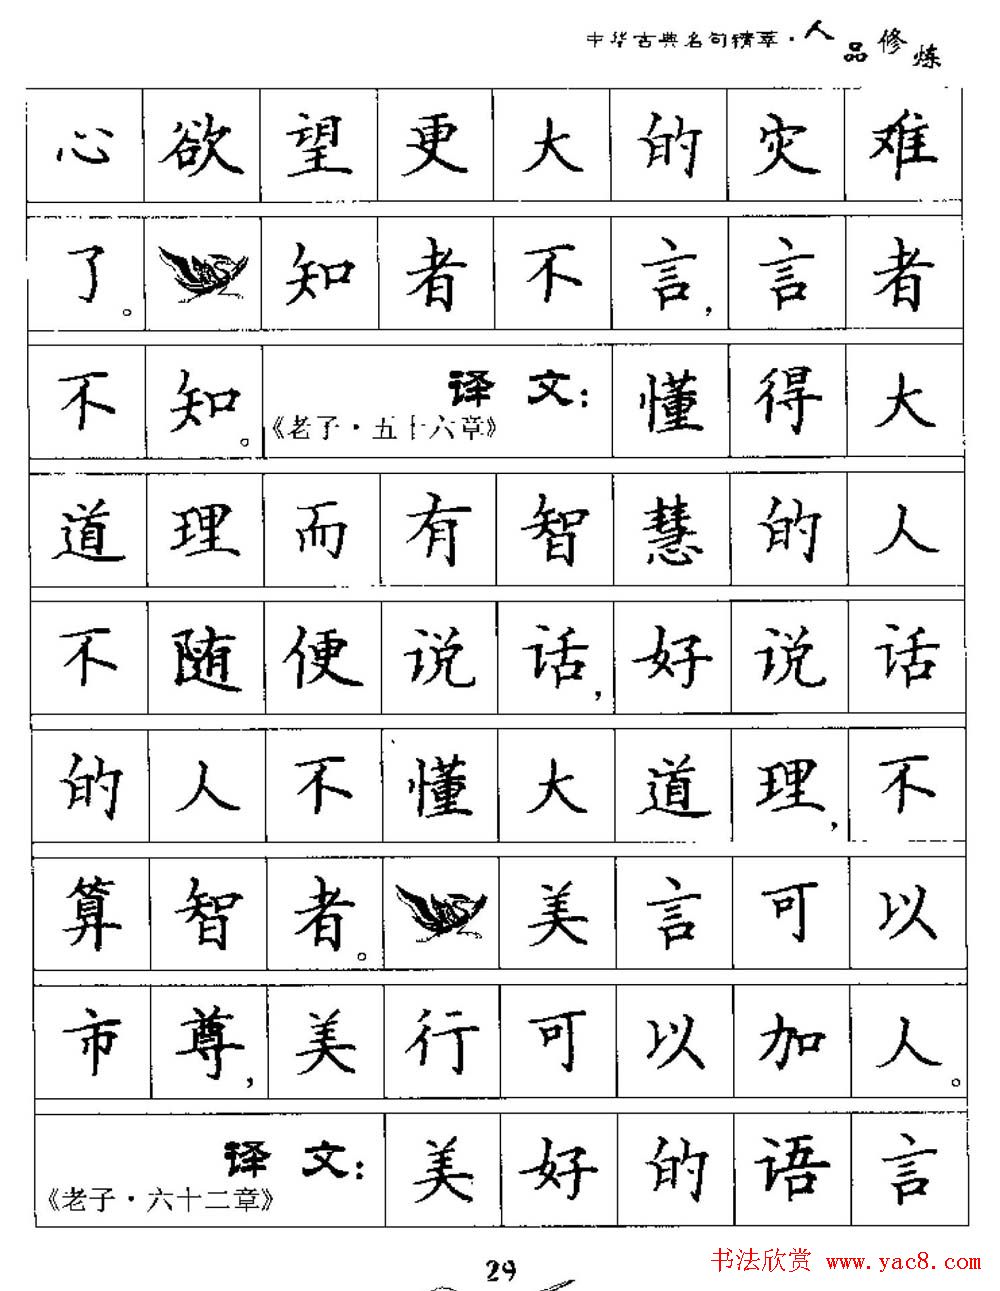 中华古典名句精萃·人品修炼
心欲望更大的灾难
了。知者不言,言者
不知。《老子·五十六章》译文:懂得大
道理而有智慧的人
不随便说话,好说话
的人不懂大道理,不
算智者。美言可以
市尊,美行可以加人。
《老子·六十二章》译文:美好的语言
29
书法欣赏 www.yac8.com